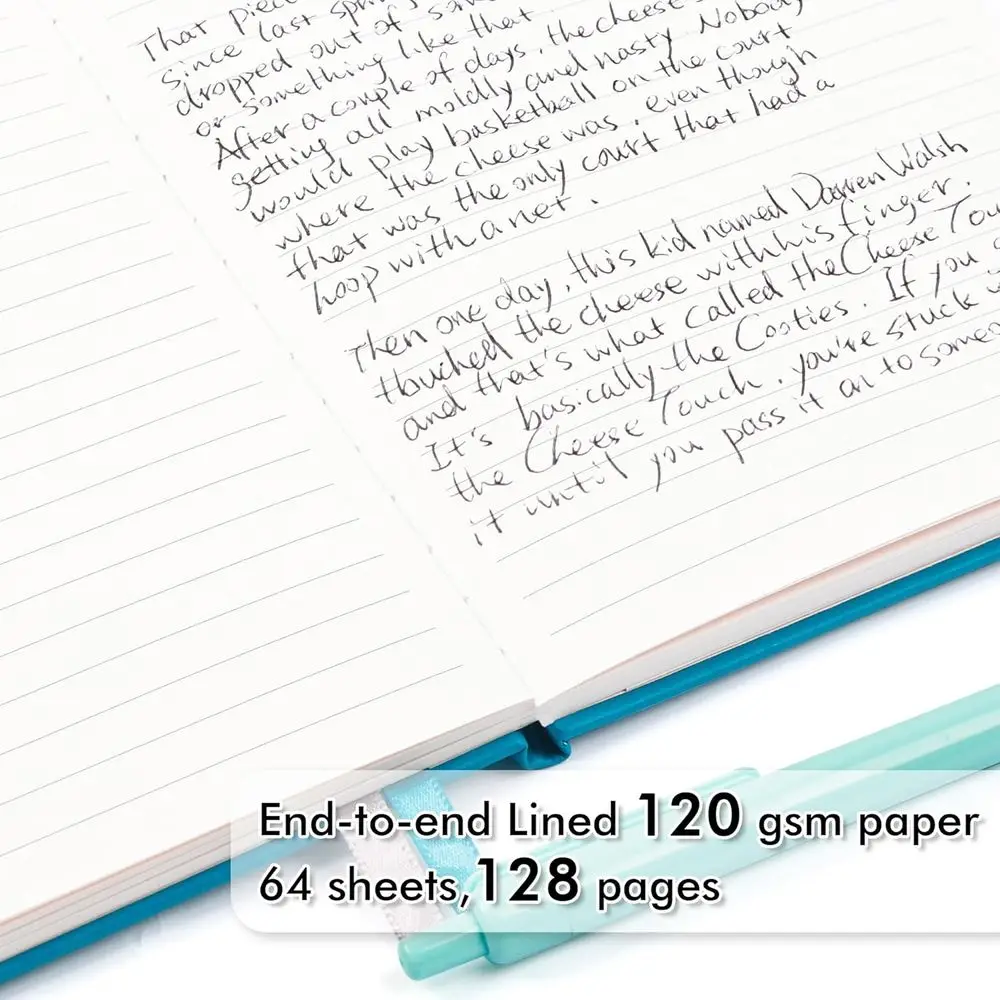 That piec
since last spr
dropped out of
or something like that
After a couple of days, the cheese
getting all moldly and nasty Nobody
would play basketball on the court
where the cheese was, even though
that was the only court that had a
hoop with a net.
Then one day, this kid named Darren Walsh
thouched the cheese with his finger.
and that's what called the Cheese Tou
It's basically the Cooties. If you
the Cheese Touch, you're stuck
it until you pass it on to someo
End-to-end Lined 120 gsm paper
64 sheets,128 pages